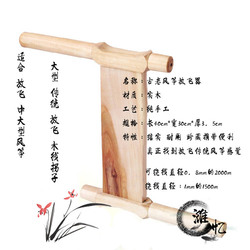 大型 传统 放飞 木线拐子
适合 放飞 中大型风筝
名称：古老风筝放飞器
材质：实木
工艺：纯手工
规格：长40cm*宽30cm*厚3.5cm
特性：结实 耐用 珍藏携带便利
真正找到放飞传统风筝感觉
可绕线直径：0.8mm的2000m
可绕线直径：1mm的1500m
潍忆